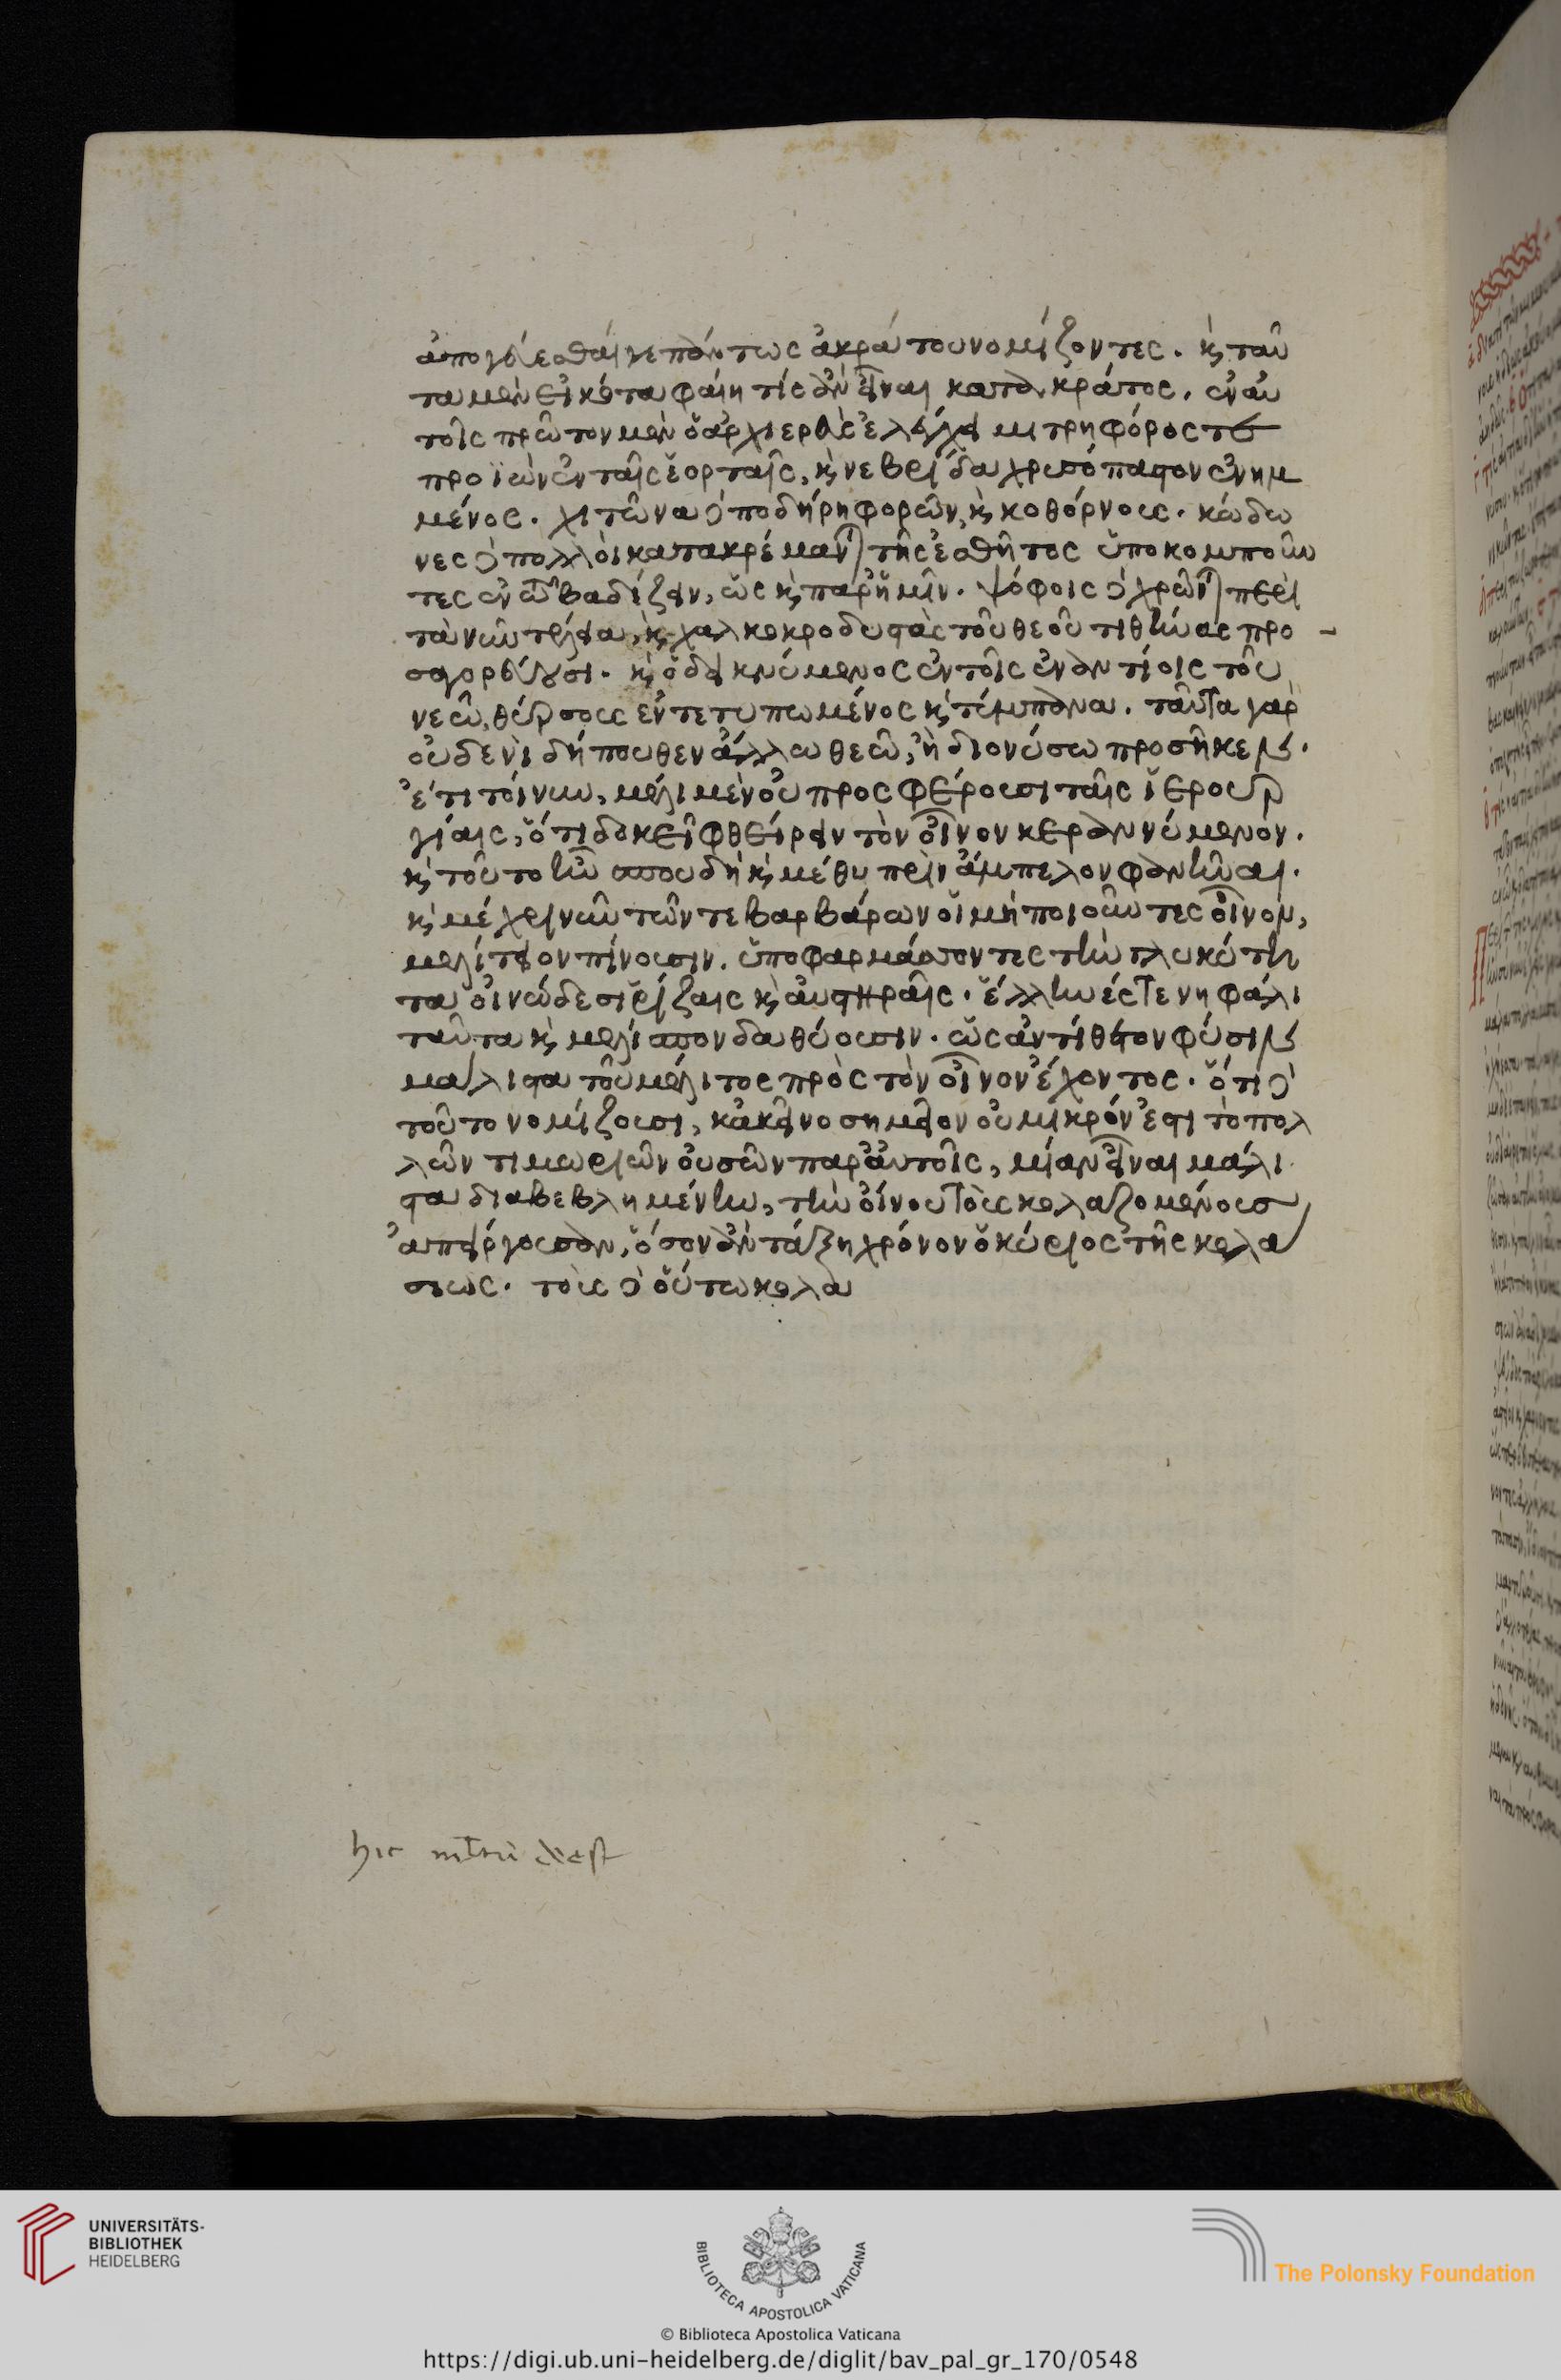 ἀπογεύεσθαί γε πάντως ἀκράτου νομίζοντες. κ̀ ταῦ
τα μὲν εἰκότα φαίη τίς ἂν εἶναι κατὰ κράτος. ἐναυ
τοῖς πρῶτον μὲν ὁ ἀρχιερεὺς ἐλέγχει μιτρηφόρος τε
προϊὼν ἐν ταῖς ἑορταῖς, κ̀ νεβρίδα χρυσόπαστον ἐνημ
μένος. χιτῶνα δὲ ποδήρη φορῶν, κ̀ κοθόρνους. κώδω
νες δὲ πολλοὶ κατακρέμανται τῆς ἐσθῆτος ὑποκομποῦν
τες ἐν τῶ βαδίζειν, ὡς κ̀ παρ' ἡμῖν. ψόφοις δὲ χρῶνται περὶ
τὰ νυκτέλεια, κ̀ χαλκοκροδυστὰς τοῦ θεοῦ τιθήνας προ-
σαγορεύουσι. κ̀ ὁ δεικνύμενος ἐν τοῖς ἐναντίοις τοῦ
νεῶ, θύρσους ἐντετυπωμένος κ̀ τύμπανα. ταῦτα γὰρ
οὐδενὶ δήπουθεν ἄλλω θεῶ, ἢ διονύσω προσῆκεν.
ἔτι τοίνυν, μέλι μὲν οὐ προσφέρουσι ταῖς ἱερουρ
γίαις, ὅτι δοκεῖ φθείρειν τὸν οἶνον κεραννύμενον.
κ̀ τοῦτο ἦν σπονδὴ κ̀ μέθυ πρὶν ἄμπελον φανῆναι.
κ̀ μέχρι νῦν τῶν τε βαρβάρων οἱ μὴ ποιοῦντες οἶνον,
μελίτειον πίνουσιν. ὑποφαρμάσσοντες τὴν γλυκύτη
τα οἰνώδεσι ῥίζαις κ̀ αὐστηραῖς. ἕλληνές τε νηφάλι
ταῦτα κ̀ μελίσπονδα θύουσιν. ὡς ἀντίθετον φύσιν
μάλιστα τοῦ μέλιτος πρὸς τὸν οἶνον ἔχοντος. ὅτι δὲ
τοῦτο νομίζουσι, κἀκεῖνο σημεῖον οὐ μικρόν ἐστι τὸ πολ
λῶν τιμωριῶν οὐσῶν παρ' αὐτοῖς, μίαν εἶναι μάλι
στα διαβεβλημένην, τὴν οἴνου τοὺς κολαζομένους
ἀπείργουσαν, ὅσον ἂν τάξη χρόνον ὁ κύριος τῆς κολα
σεως. τοὺς δὲ οὕτω κολα
hic m̅t̅u̅ deest
UNIVERSITÄTS-
BIBLIOTHEK
HEIDELBERG
BIBLIOTECA APOSTOLICA VATICANA
The Polonsky Foundation
© Biblioteca Apostolica Vaticana
https://digi.ub.uni-heidelberg.de/diglit/bav_pal_gr_170/0548